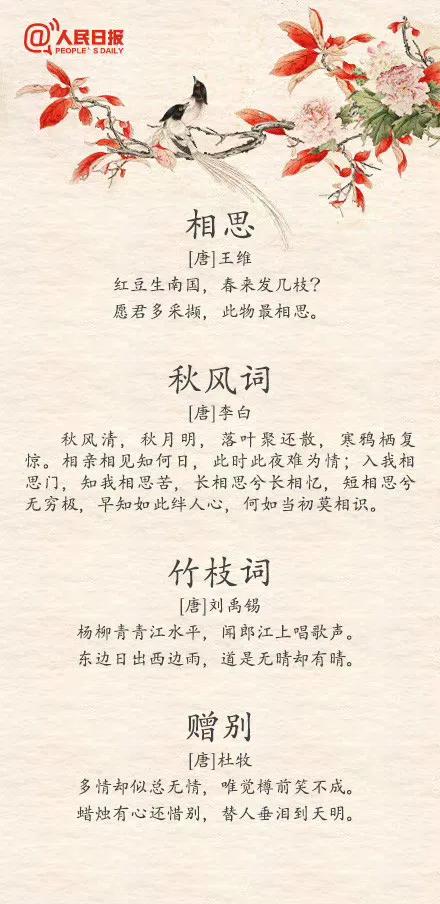 @人民日报
PEOPLE'S DAILY
相思
[唐]王维
红豆生南国，春来发几枝？
愿君多采撷，此物最相思。
秋风词
[唐]李白
秋风清，秋月明，落叶聚还散，寒鸦栖复
惊。相亲相见知何日，此时此夜难为情；入我相
思门，知我相思苦，长相思兮长相忆，短相思兮
无穷极，早知如此绊人心，何如当初莫相识。
竹枝词
[唐]刘禹锡
杨柳青青江水平，闻郎江上唱歌声。
东边日出西边雨，道是无晴却有晴。
赠别
[唐]杜牧
多情却似总无情，唯觉樽前笑不成。
蜡烛有心还惜别，替人垂泪到天明。